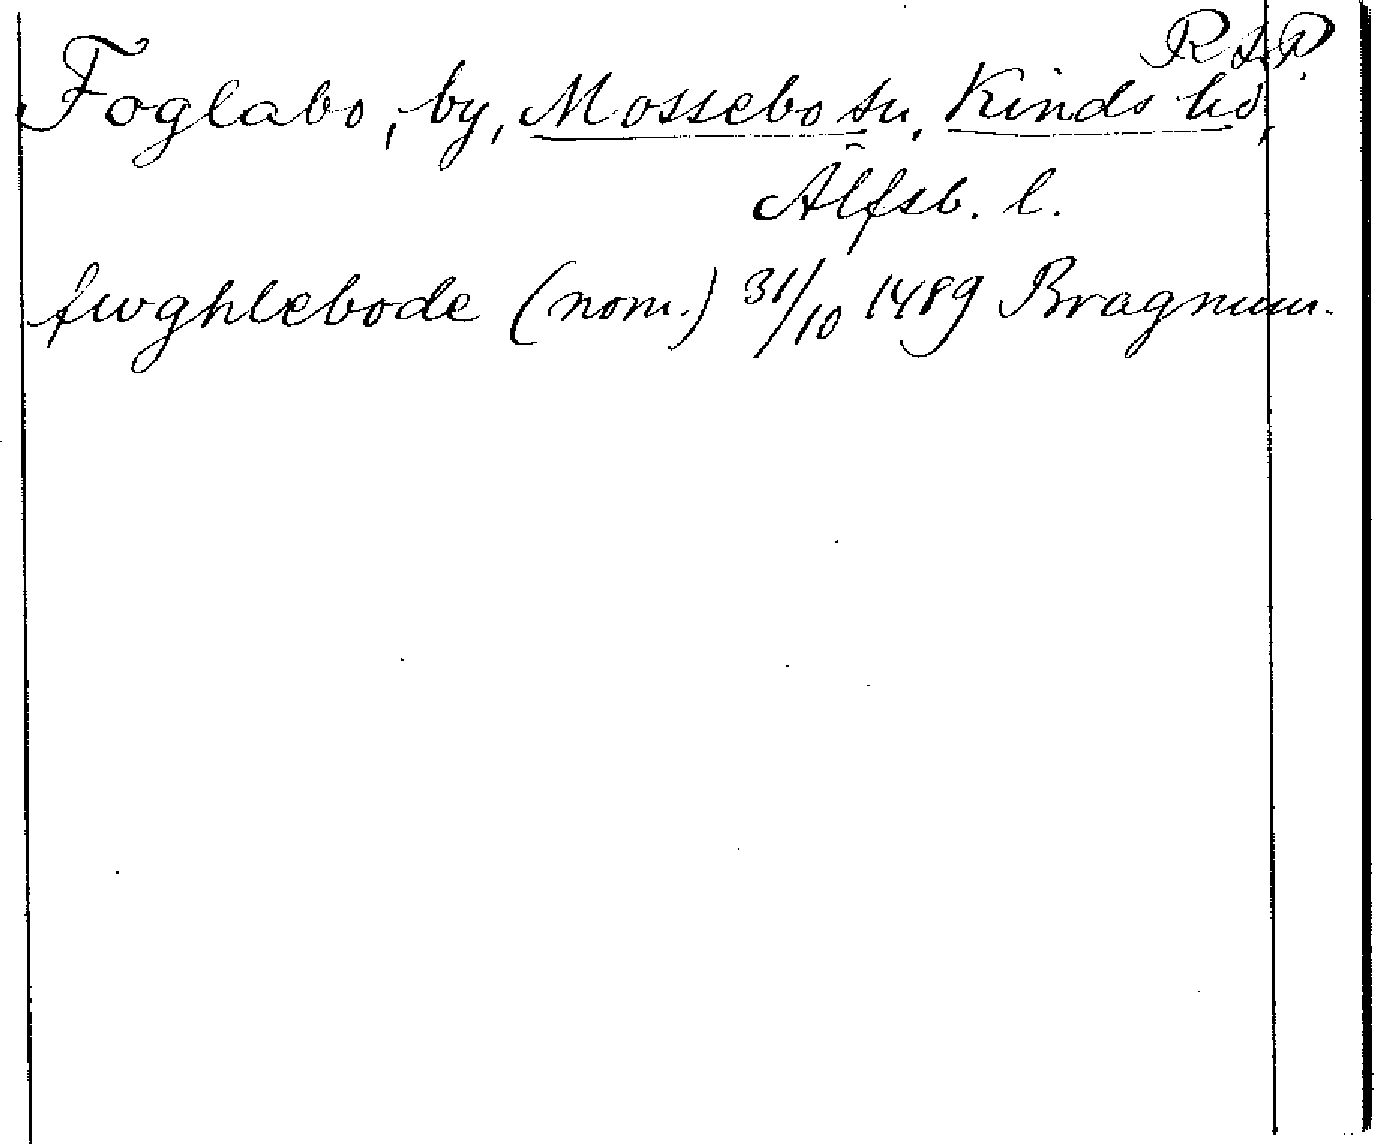 R A.P.
Foglabo, by, Mossebo sn, Kinds hd,
Älfsb. l.
fwghlebode (nom.) 31/10 1489 Bragnum.